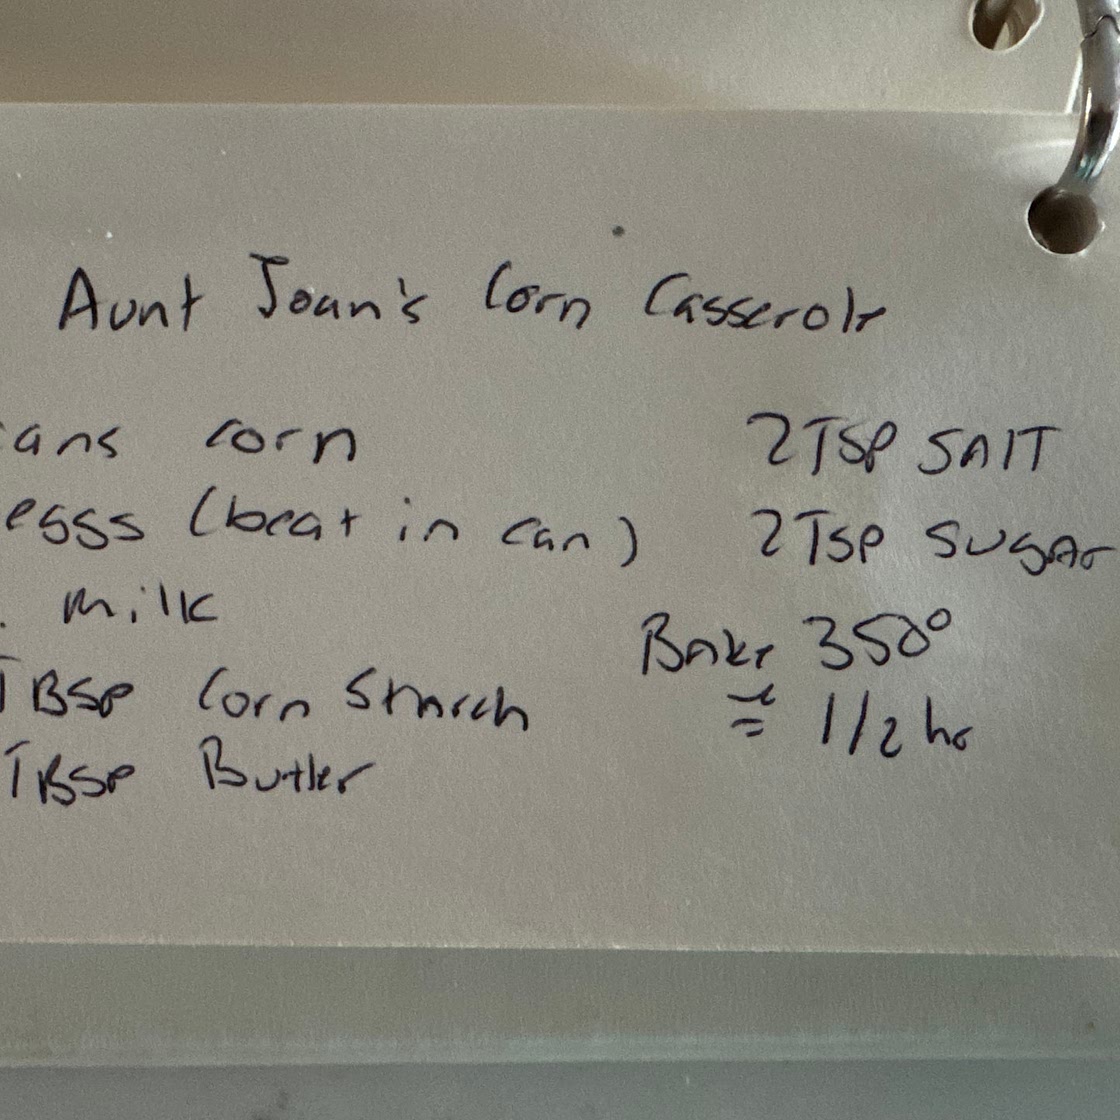 Aunt Joan's Corn Casserole
ans corn
eggs (beat in can)
. milk
TBSP Corn Starch
TBSP Butter
2 TSP SAlT
2 TSP SUgAr
Bake 350°
≅ 1/2 hr